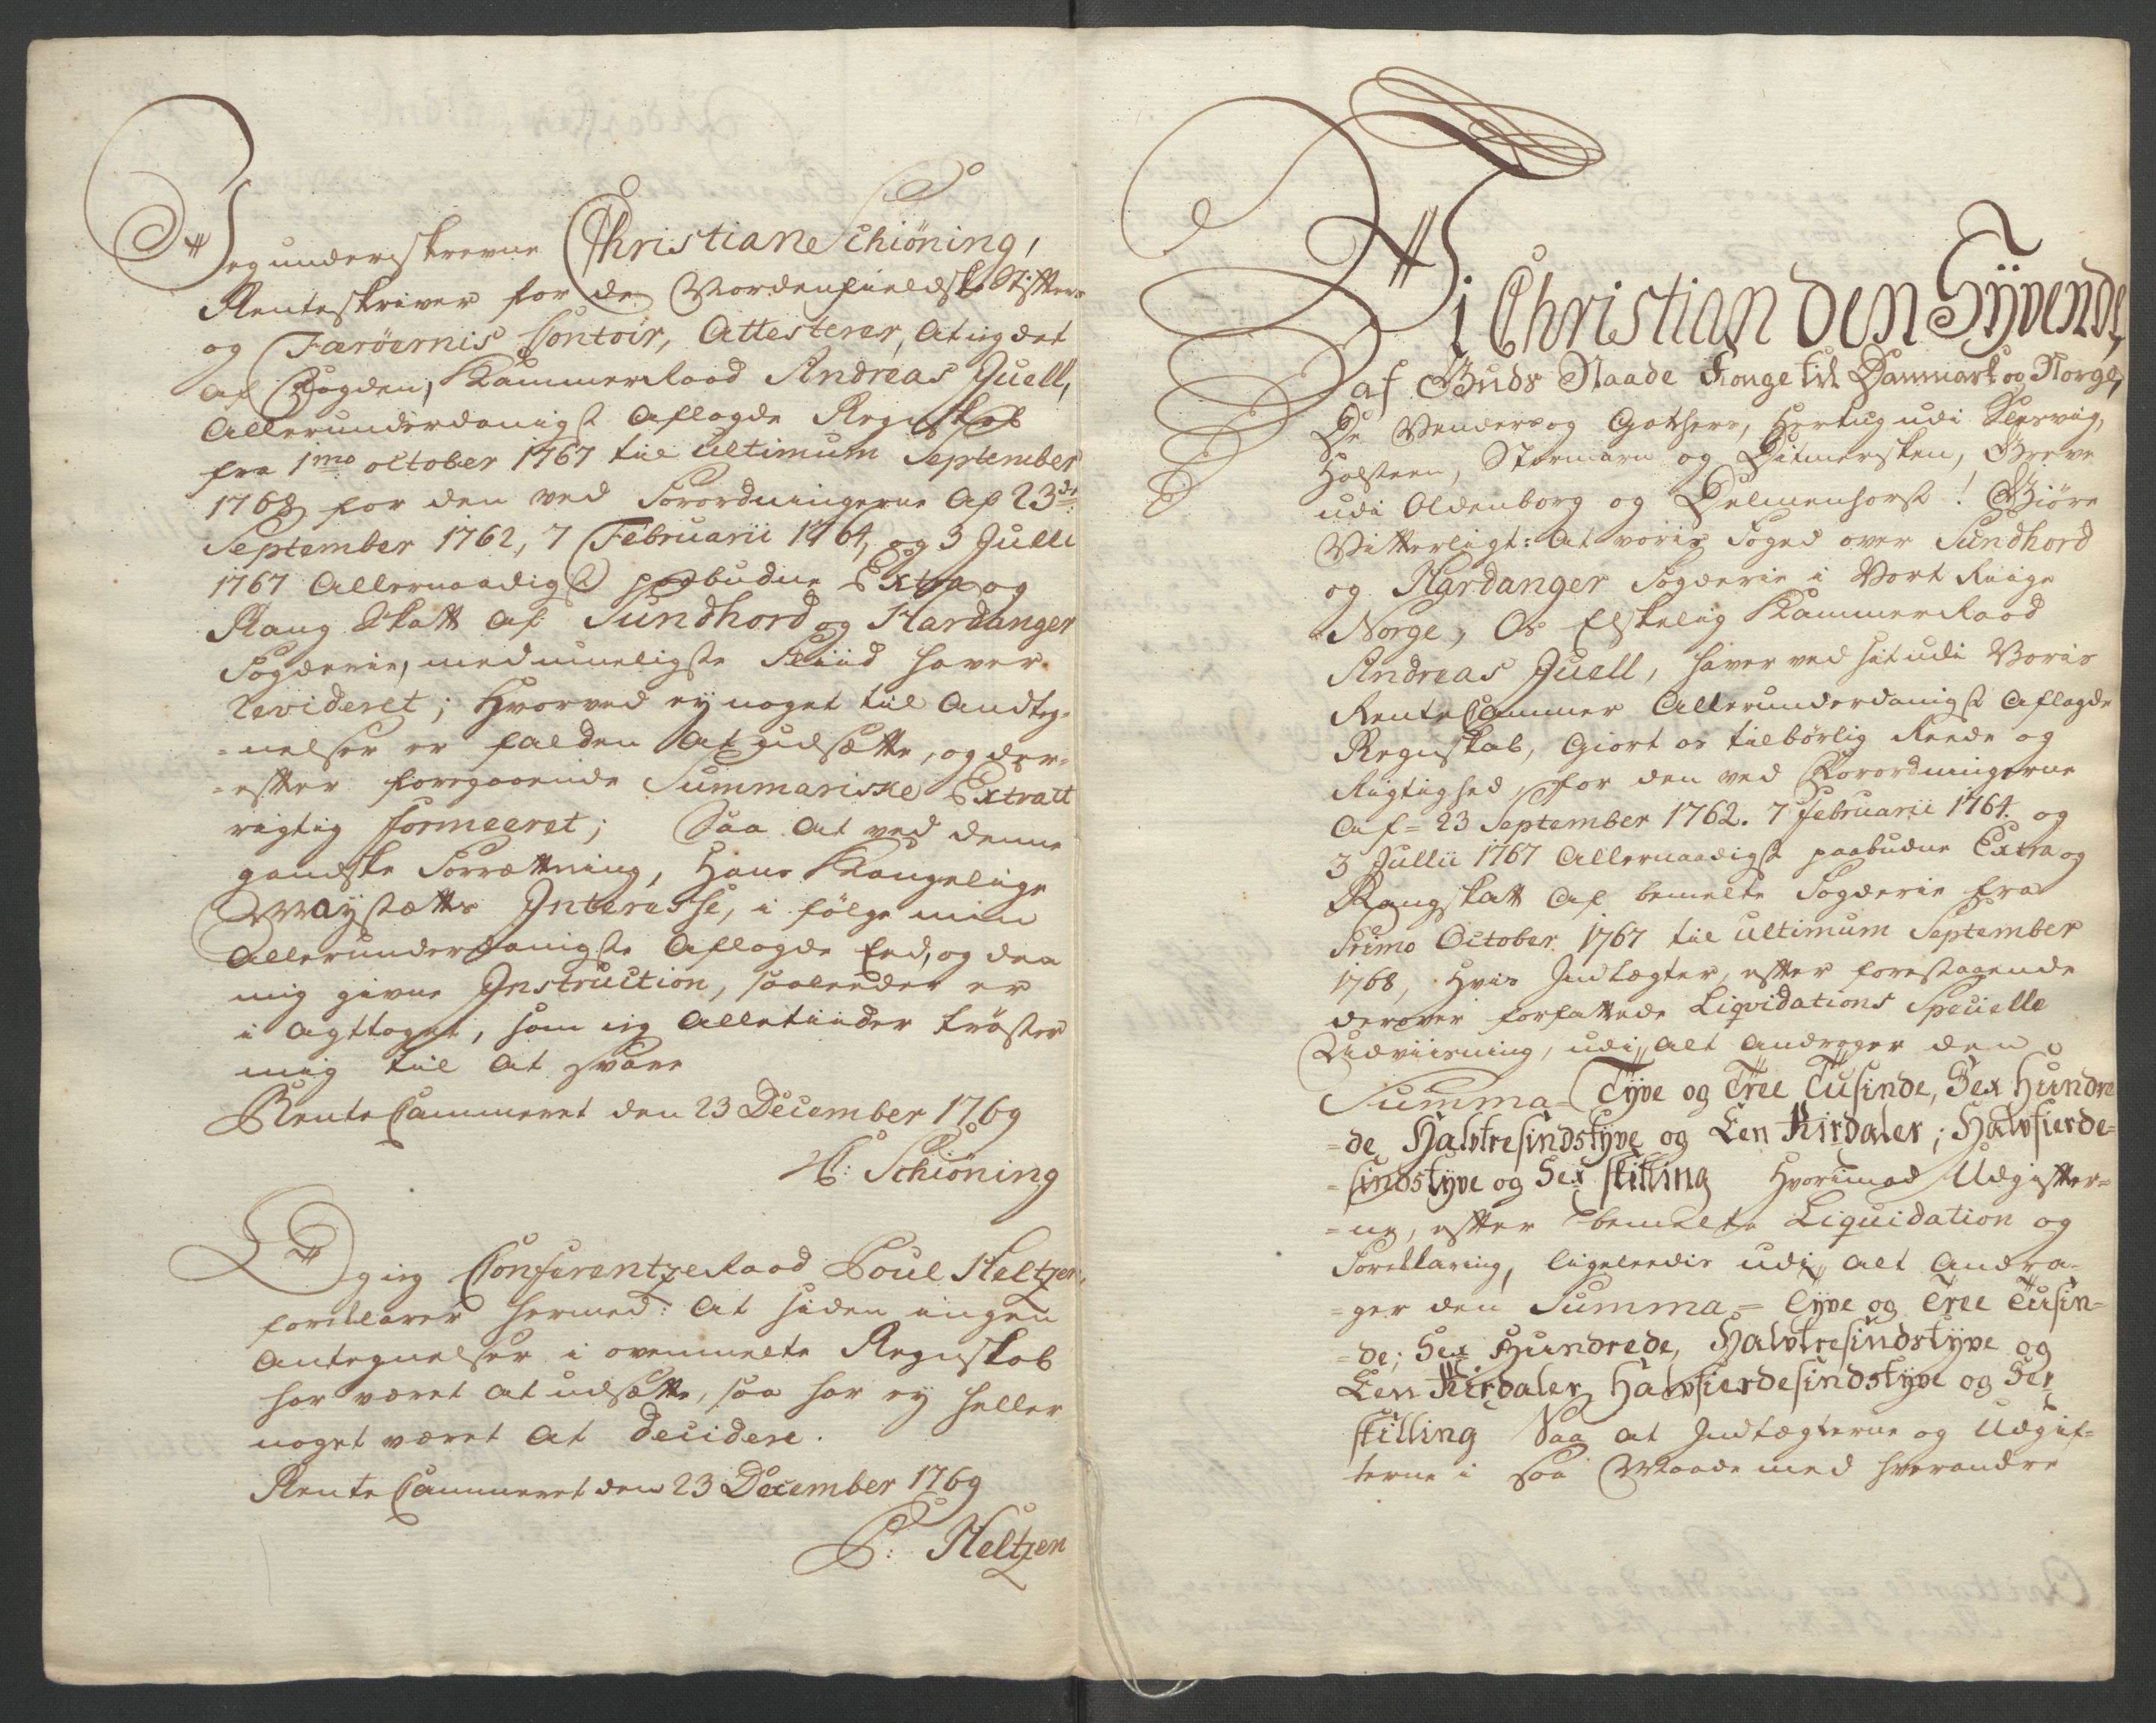 Jeg underskrevne Christiane Schiöning,
Renteskriver for de Nordenfieldske Stifters
og Færöernis Contoir, Attesterer, at jeg det
af Fogden, Kammerraad Andreas Juell,
Allerunderdanigst aflagde Regnskab
fra 1mo october 1767 til ultimum September
1768 for den ved Forordningerne af 23de
September 1762, 7 Februarii 1764, og 3 Julli
1767 Allernaadigst paabudne Extra og
Rang Skatt af Sundhord og Hardanger
Fogderie, med mueligste Fliid haver
revideret; Hvorved ey noget til Andteg-
-nelser er falden at udsætte, og der-
-efter foregaaende Summariske Extract
rigtig formeeret; Saa at ved denne
gandske Forrættning, Hans Kongelige
Mayestætts Interesse, i følge min
Allerunderdanigste aflagde Eed, og den
mig givne Instruction, saaleedes er
i agttaget, som jeg alletiider trøster
mig til at svare
RenteCammeret den 23 December 1769
C: Schiöning
Og jeg ConferentzeRaad Poul Heltzen,
forklarer hermed: At siden ingen
Antegnelser i ovenmelte Regnskab
har været at udsætte, saa har ey heller
noget været at decidere.
RenteCammeret den 23 December 1769
P: Heltzen
Vi Christian den Syvende,
af Guds Naade Konge til Danmark og Norge,
De Venders og Gothers, Hertug udi Slesvig,
Holsteen, Stormarn og Ditmersken, Greve
udi Oldenborg og Delmenhorst! Giøre
Vitterligt: At voris Foged over Sundhord
og Hardanger Fogderie i Vort Riige
Norge, Os Elskelig KammerRaad
Andreas Juell, haver ved hit udi Voris
RenteCammer Allerunderdanigst aflagde
Regnskab, Giort os tilbørlig Reede og
Rigtighed, for den ved Forordningerne
af = 23 September 1762. 7 Februarii 1764. og
3 Jullii 1767 Allernaadigst paabudne Extra og
Rangskatt af bemelte Fogderie fra
Primo October 1767 til ultimum September
1768, Hvis Indtægter, efter forestaaende
derover forfattede Liqvidations Specielle
Udviisning, udi alt andrager den
Summa = Tyve og Tree Tusinde, Sex Hundre
-de Halvtresindstyve og Een Rixdaler; Halvfierde-
-sindstyve og Sex skilling Hvorimod Udgifter-
-ne, efter bemelte Liquidation og
Forklaring, ligeleedis udi alt andra-
-ger den Summa = Tyve og Tree Tusin-
-de; Sex Hundrede, Halvtresindstyve og
Een Rixdaler Halvfierdesindstyve og Sex
skilling Saa at Indtægterne og Udgif-
terne i saa Maade med hverandre